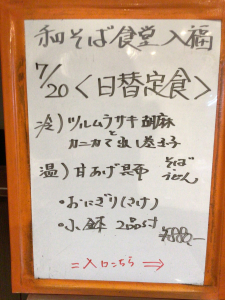 和そば食堂 入福
7/20 <日替定食>
冷) ツルムラサキ 胡麻
と
カニカマ 玉子
温) 甘あげ昆布 そば
うどん
・おにぎり(さけ)
・小鉢 2品付
⇒入口こちら ⇒